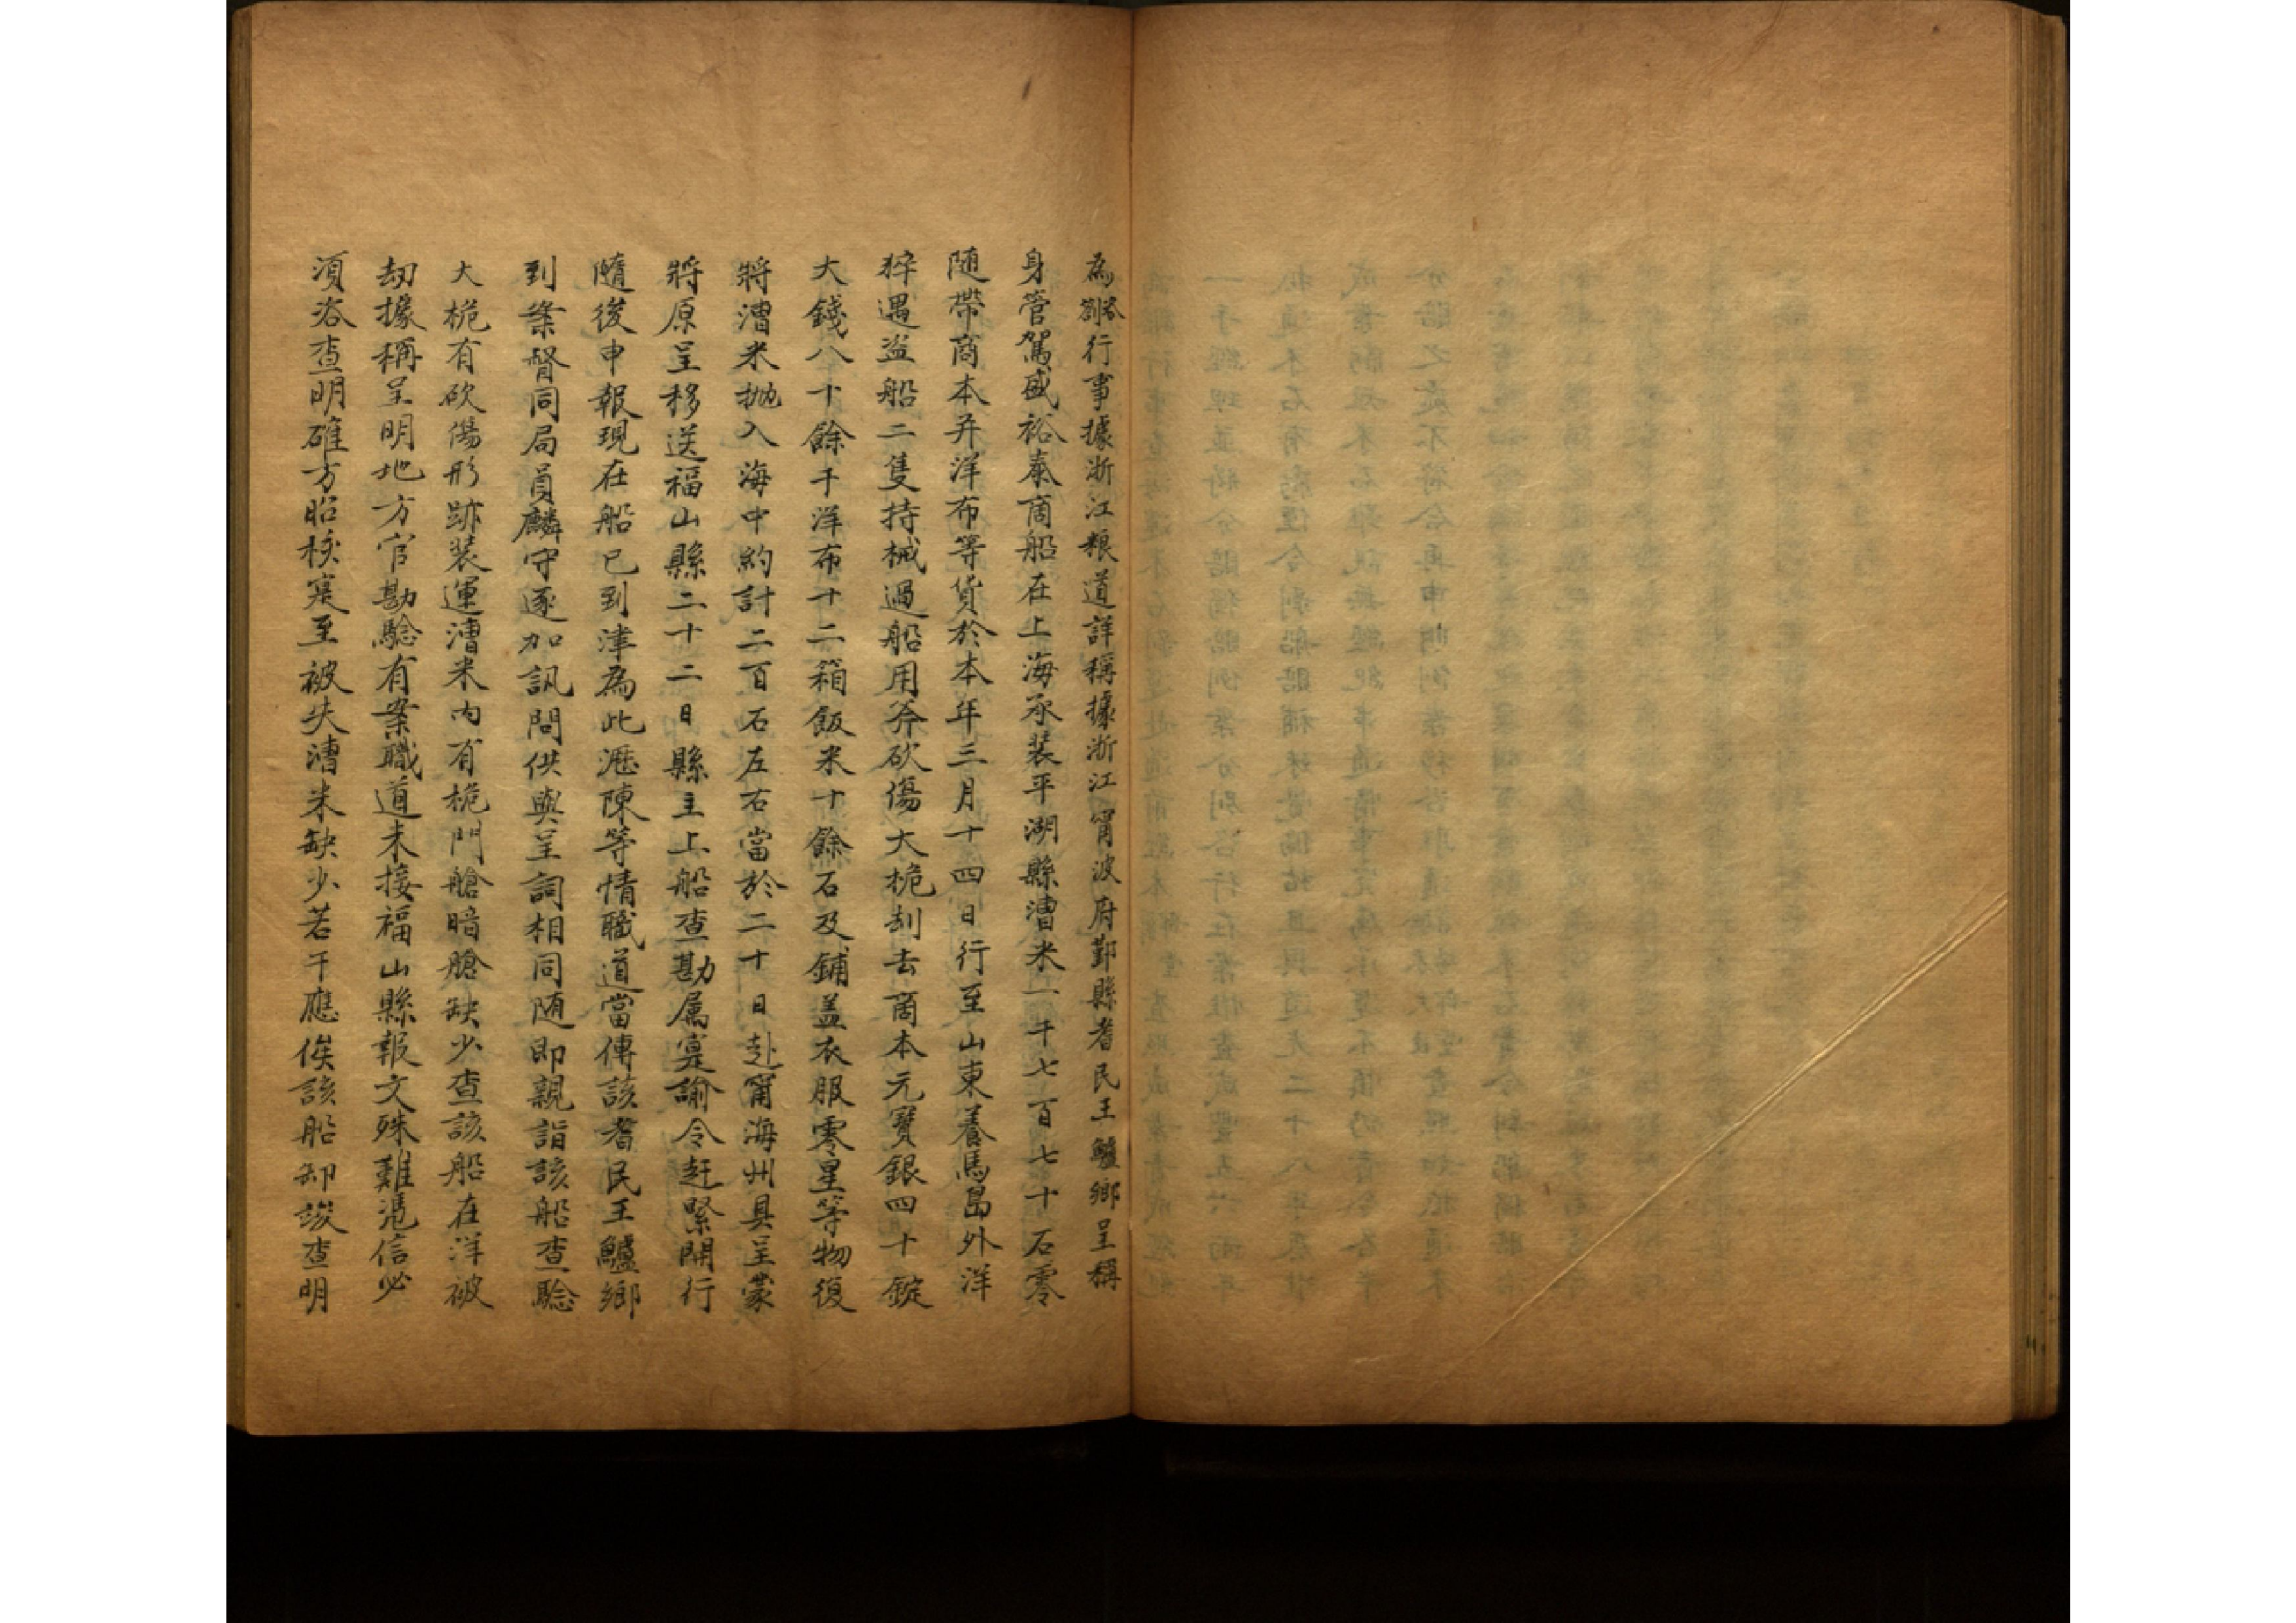 為咨劄行事據浙江粮道詳稱據浙江甯波府鄞縣耆民王鱸鄉呈稱
身管駕盛裕泰商船在上海承装平湖縣漕米一千七百七十石零
随帶商本并洋布等貨於本年三月十四日行至山東養馬島外洋
猝遇盗船二隻持械過船用斧砍傷大桅刦去商本元寶銀四十錠
大錢八十餘千洋布十二箱飯米十餘石及鋪盖衣服零星等物復
將漕米抛入海中約計二百石左右當於二十日赴甯海州具呈蒙
將原呈移送福山縣二十二日縣主上船查勘属寔諭令赶緊開行
隨後申報現在船已到津為此瀝陳等情職道當傳該耆民王鱸鄉
到案督同局員麟守逐加訊問供與呈詞相同随即親詣該船查騐
大桅有砍傷形跡装運漕米内有桅門艙暗艙缺少查該船在洋被
劫據稱呈明地方官勘騐有案職道未接福山縣報文殊難慿信必
湏咨查明確方昭核寔至被失漕米缺少若干應俟該船卸竣查明